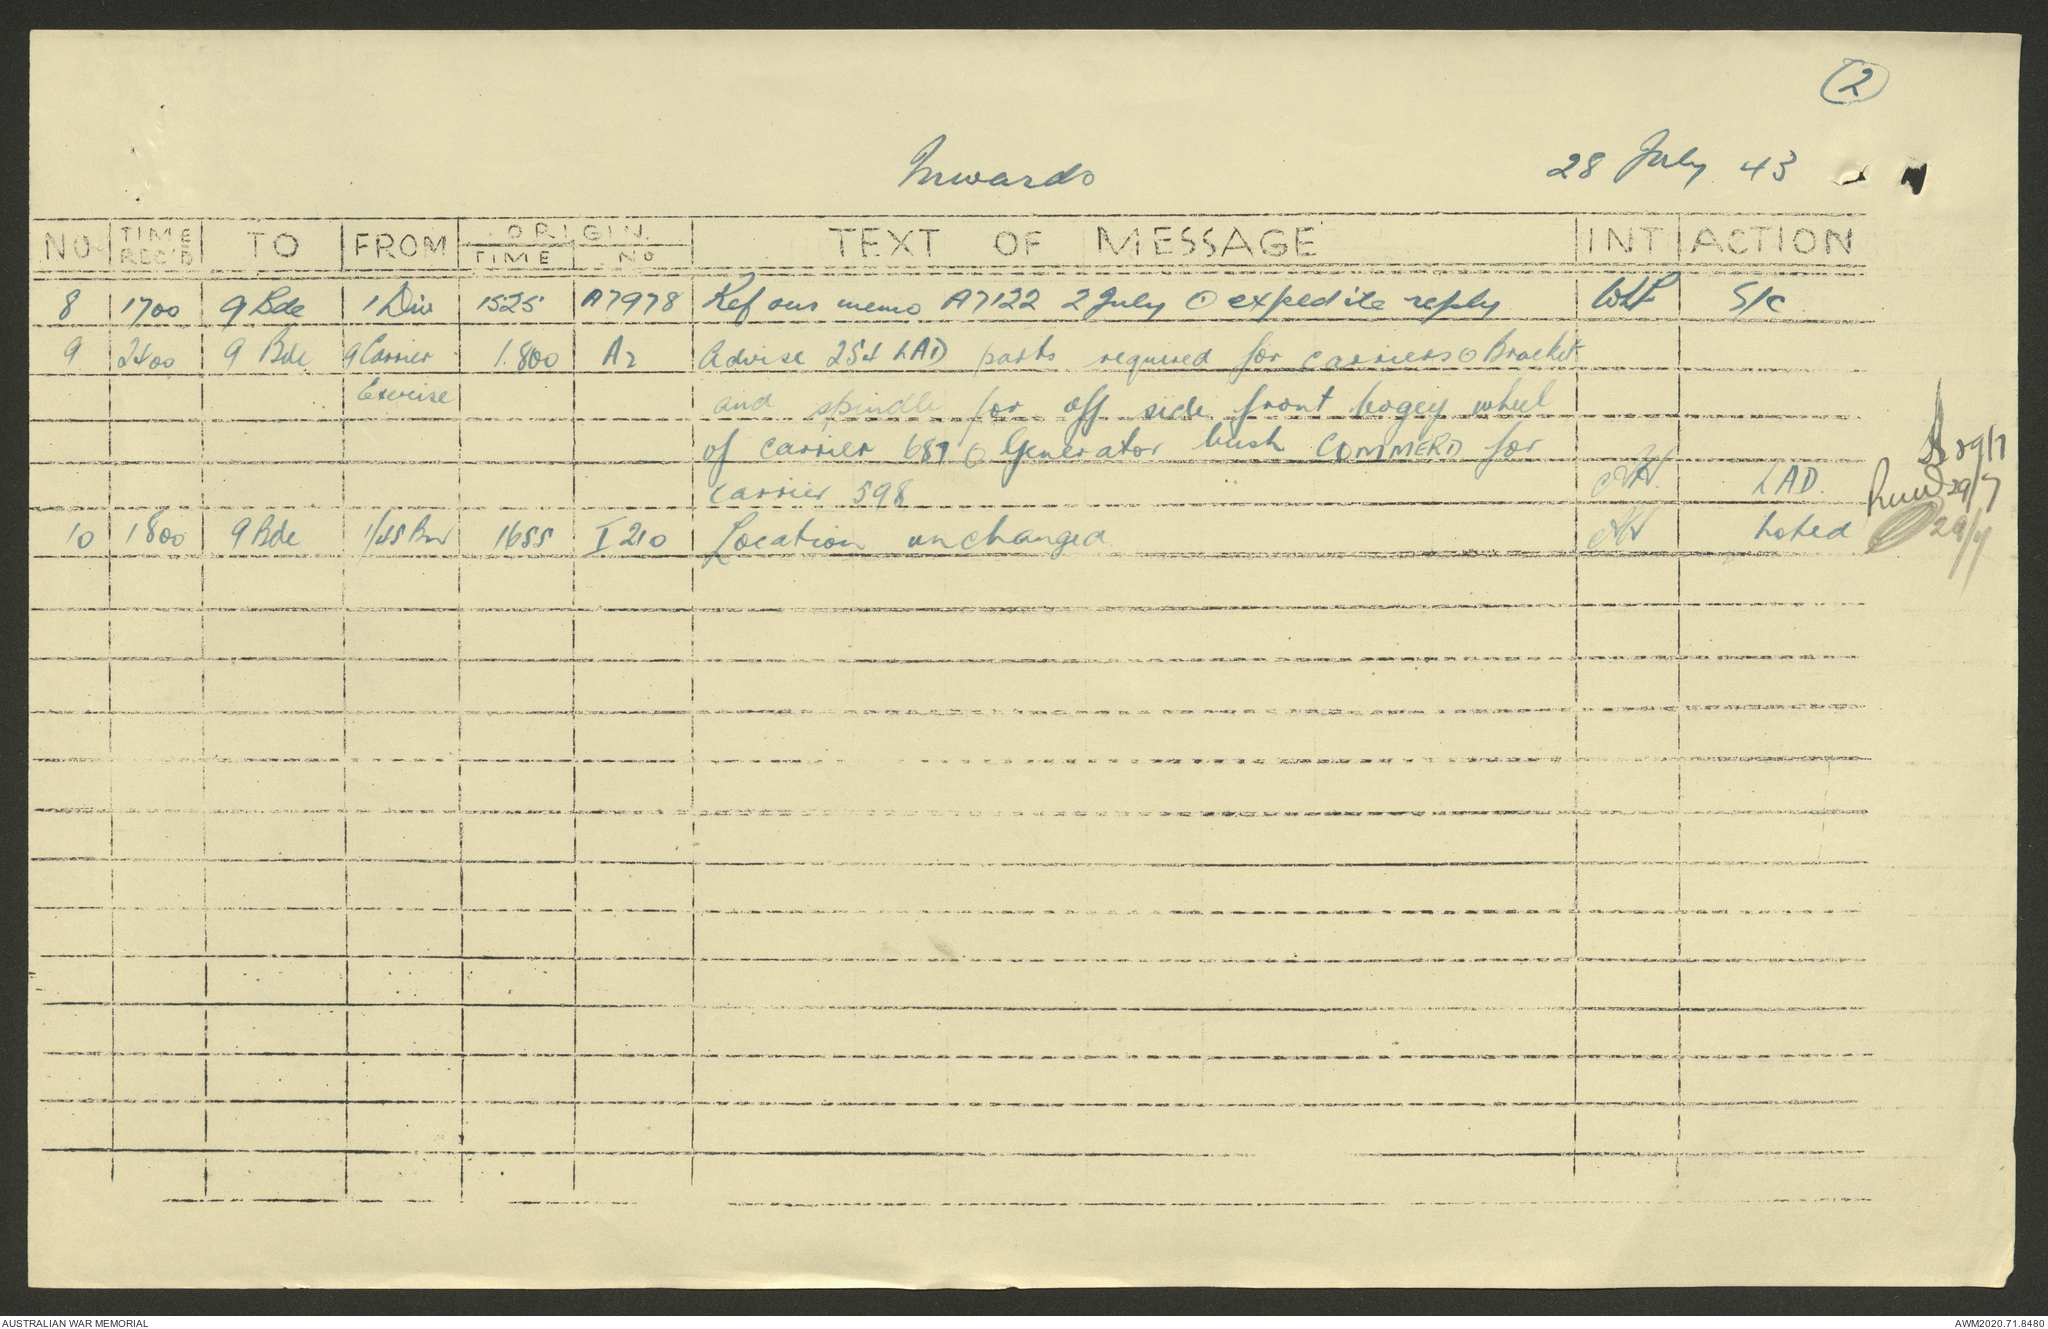 (2)
Inwards
28 July 43
NO. TIME REC'D TO FROM ORIGIN. TIME NO TEXT OF MESSAGE INT ACTION
8 1700 9 Bde 1 Div 1525 A7978 Ref our memo A7122 2 July ⊙ expedite reply WLF S/C
9 2400 9 Bde 9 Carrier 1800 A2 Advise 254 LAD parts required for carriers ⊙ Bracket
Exercise and spindle for off side front bogey wheel
of carrier 687 ⊙ Generator bush COMMERD for
carrier 598 LAD.
10 1800 9 Bde 1/45 Bn 1655 I 210 Location unchanged noted
29/7
29/7
29/7
AUSTRALIAN WAR MEMORIAL
AWM2020.71.8480